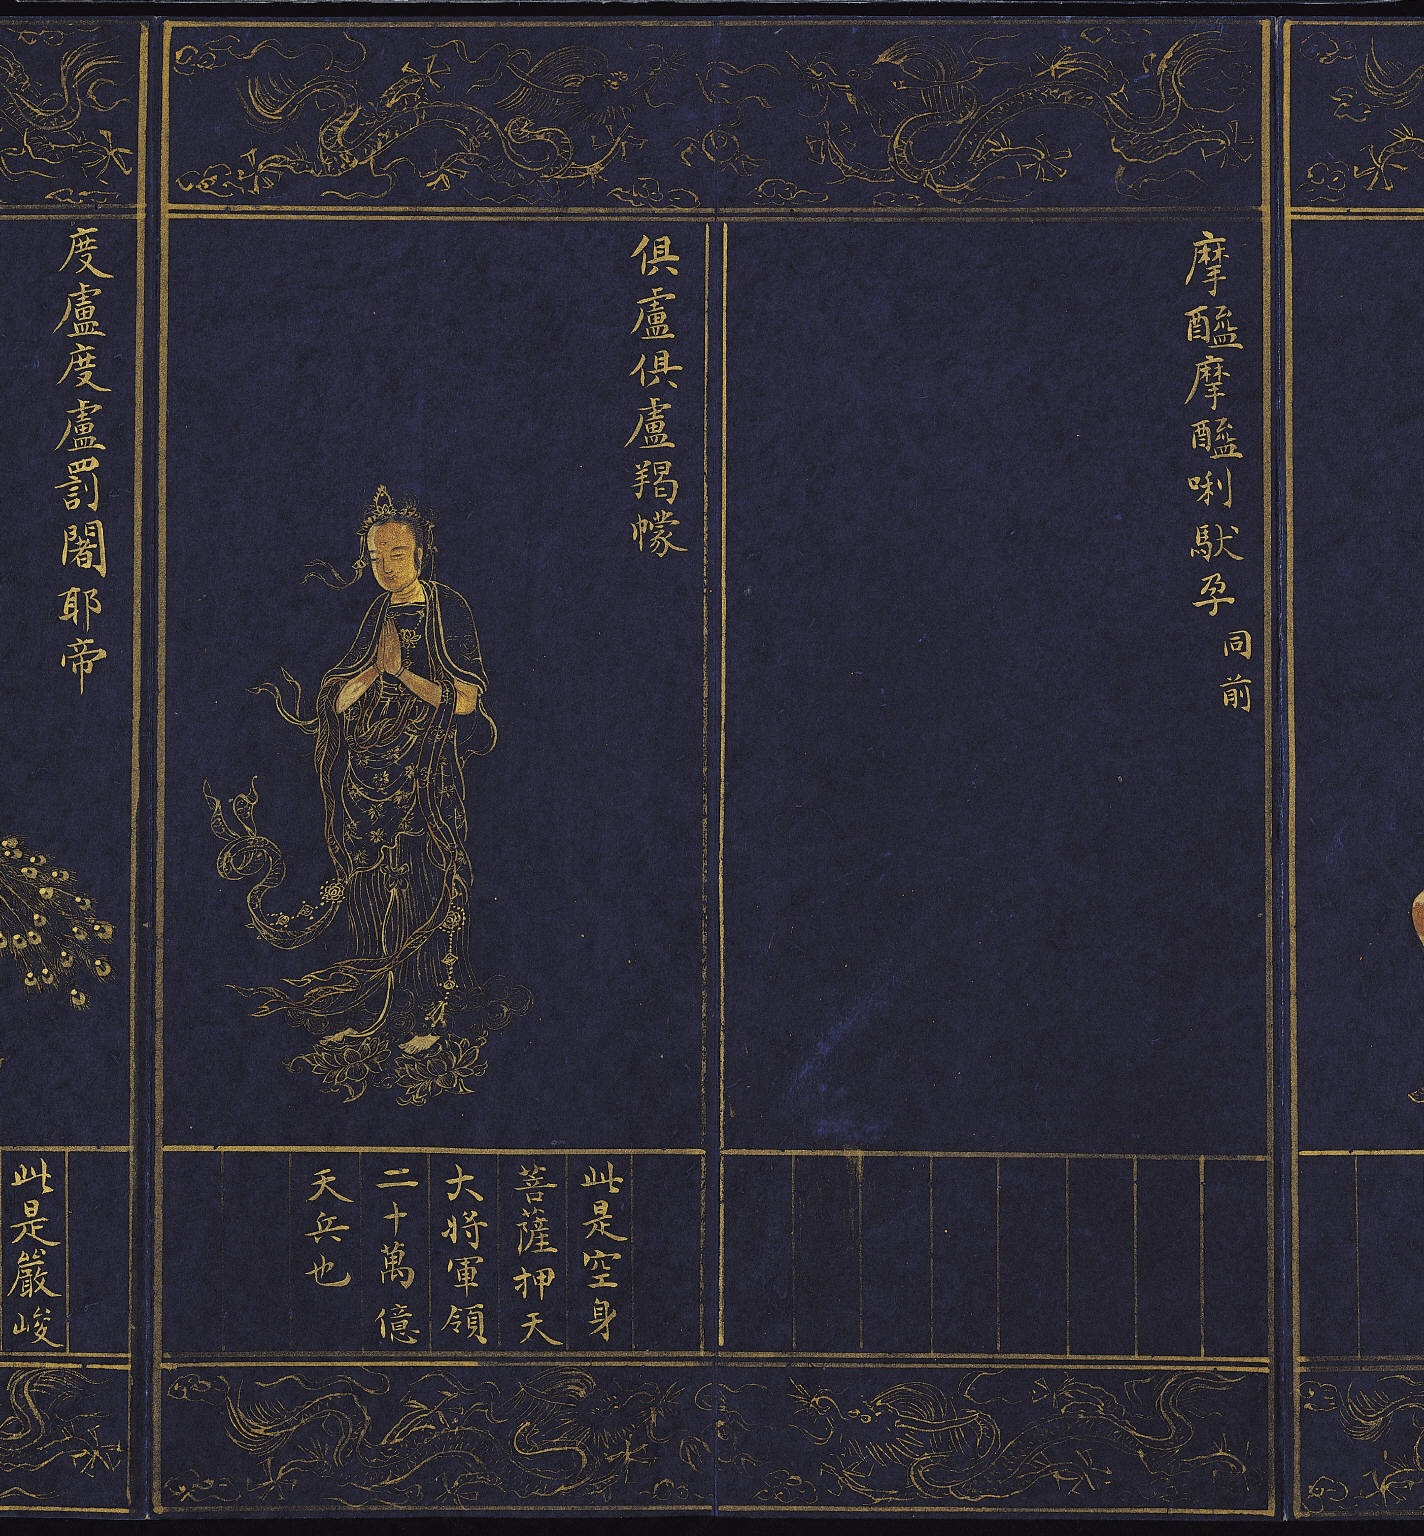 摩醯摩醯唎馱孕同前
俱盧俱盧羯幪
此是空身
菩薩押天
大將軍領
二十萬億
天兵也
度盧度盧罰闍耶帝
此是嚴峻